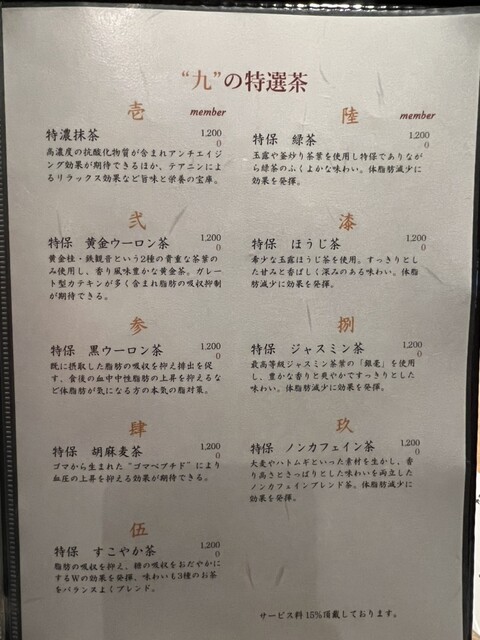 “九”の特選茶
壱
member
特濃抹茶 1,200
0
高濃度の抗酸化物質が含まれアンチエイジ
ング効果が期待できるほか、テアニンによ
るリラックス効果など旨味と栄養の宝庫。
弐
特保 黄金ウーロン茶 1,200
0
黄金桂・鉄観音という2種の貴重な茶葉の
み使用し、香り風味豊かな黄金茶。ガレー
ト型カテキンが多く含まれ脂肪の吸収抑制
が期待できる。
参
特保 黒ウーロン茶 1,200
0
既に摂取した脂肪の吸収を抑え排出を促
す、食後の血中中性脂肪の上昇を抑えるな
ど体脂肪が気になる方の本気の脂対策。
肆
特保 胡麻麦茶 1,200
0
ゴマから生まれた“ゴマペプチド”により
血圧の上昇を抑える効果が期待できる。
伍
特保 すこやか茶 1,200
0
脂肪の吸収を抑え、糖の吸収をおだやかに
するWの効果を発揮、味わいも3種のお茶
をバランスよくブレンド。
陸
member
特保 緑茶 1,200
0
玉露や釜炒り茶葉を使用し特保でありなが
ら緑茶のふくよかな味わい。体脂肪減少に
効果を発揮。
漆
特保 ほうじ茶 1,200
0
希少な玉露ほうじ茶を使用。すっきりとし
た甘みと香ばしく深みのある味わい。体脂
肪減少に効果を発揮。
捌
特保 ジャスミン茶 1,200
0
最高等級ジャスミン茶葉の「銀毫」を使用
し、豊かな香りと爽やかですっきりとした
味わい。体脂肪減少に効果を発揮。
玖
特保 ノンカフェイン茶 1,200
0
大麦やハトムギといった素材を生かし、香
り高さとさっぱりとした味わいを両立した
ノンカフェインブレンド茶。体脂肪減少に
効果を発揮。
サービス料15%頂戴しております。